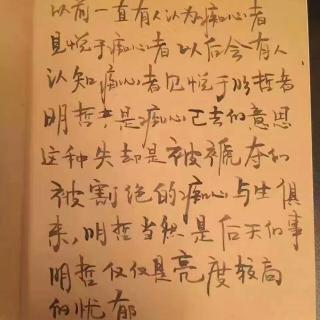 以前一直有人认为痴心者
见悦于痴心者 以后会有人
认知痴心者见悦于明哲者,
明哲只是痴心已去的意思
这种失却是被褫夺的
被割绝的痴心与生俱
来,明哲当然是后天的事
明哲仅仅是亮度较高
的忧郁